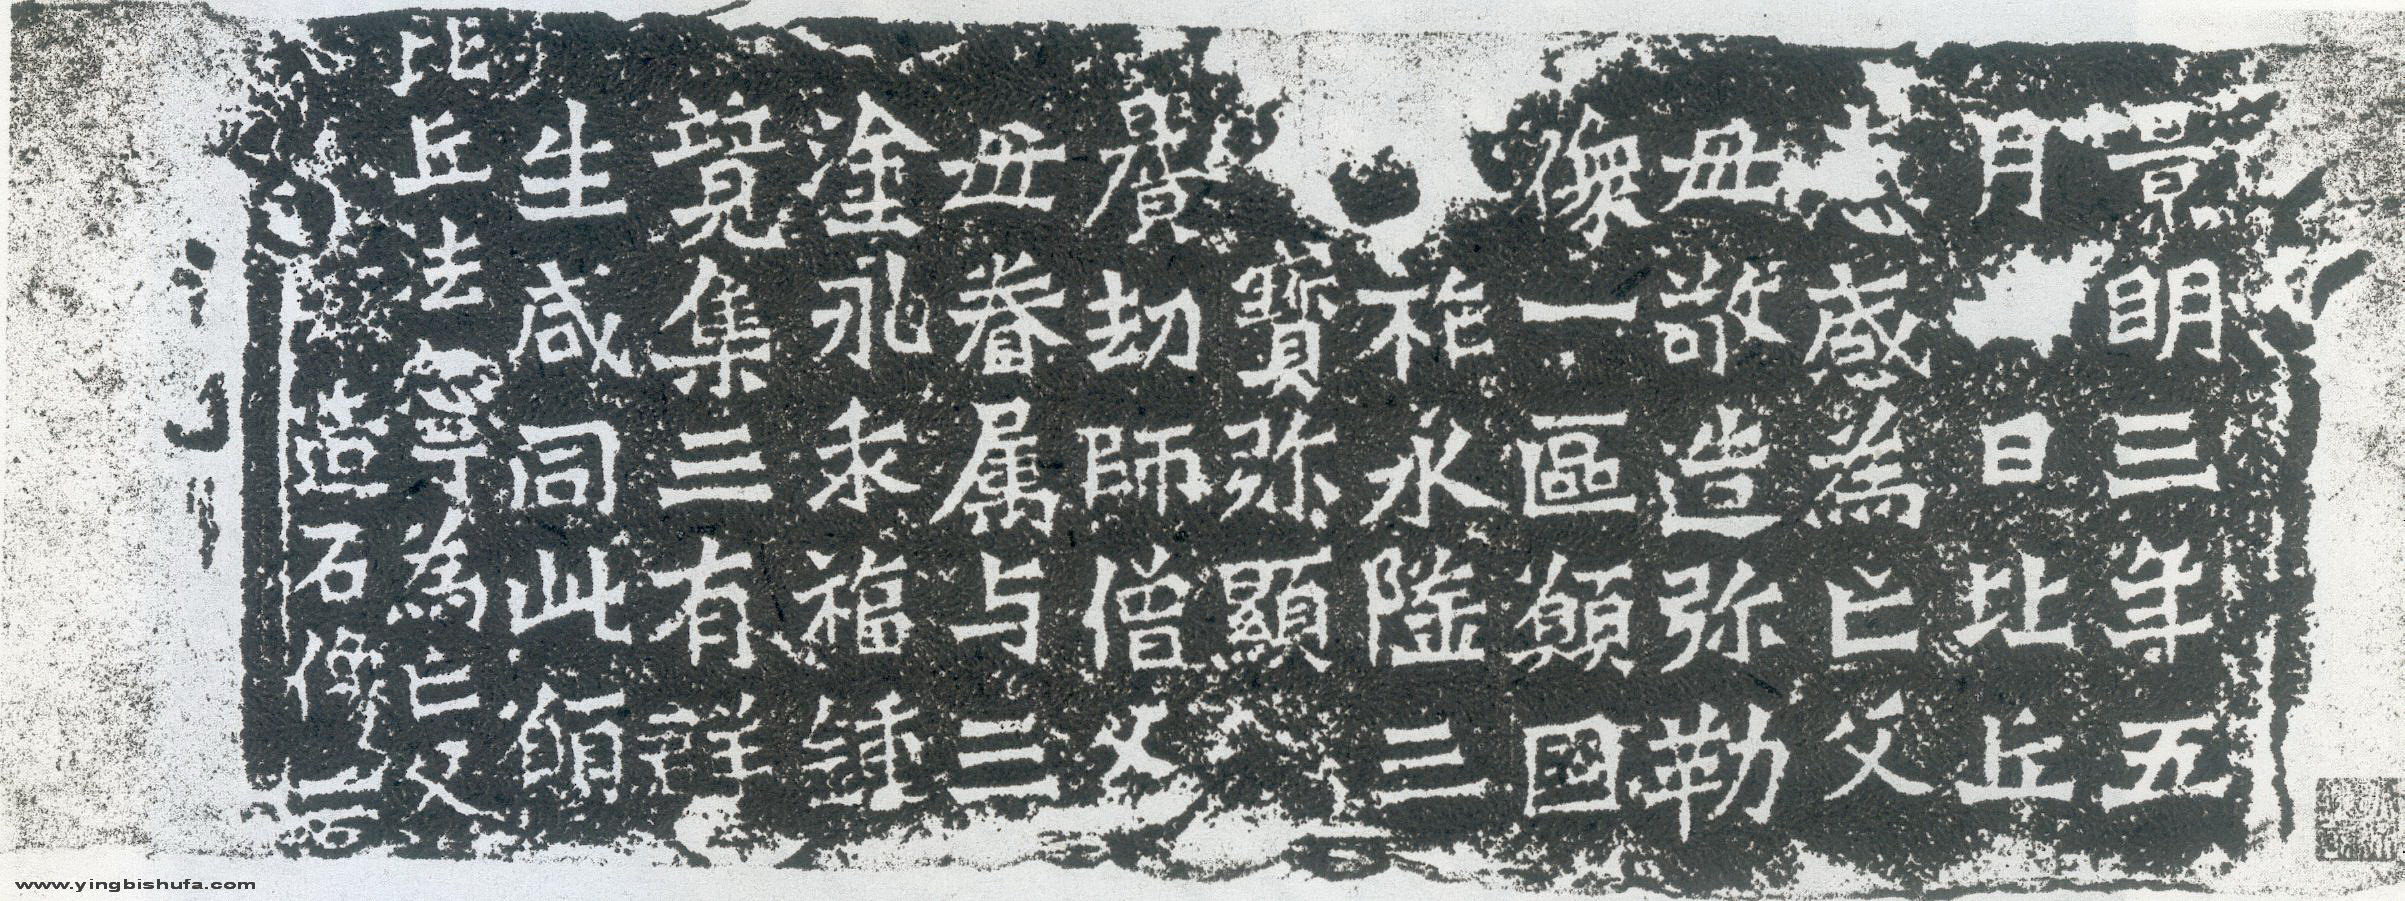 景明三年五
月日比丘
惠感為亡父
母敬造弥勒
像一區願國
祚永隆三
寳弥顯
曠劫師僧父
母眷属与三
塗永乖福鍾
竟集三有群
生咸同此願
比丘法寧為亡父
造石像一
www.yingbishufa.com